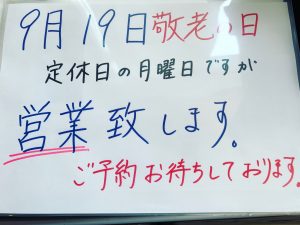 9月19日敬老の日
定休日の月曜日ですが
営業致します。
ご予約お待ちしております。